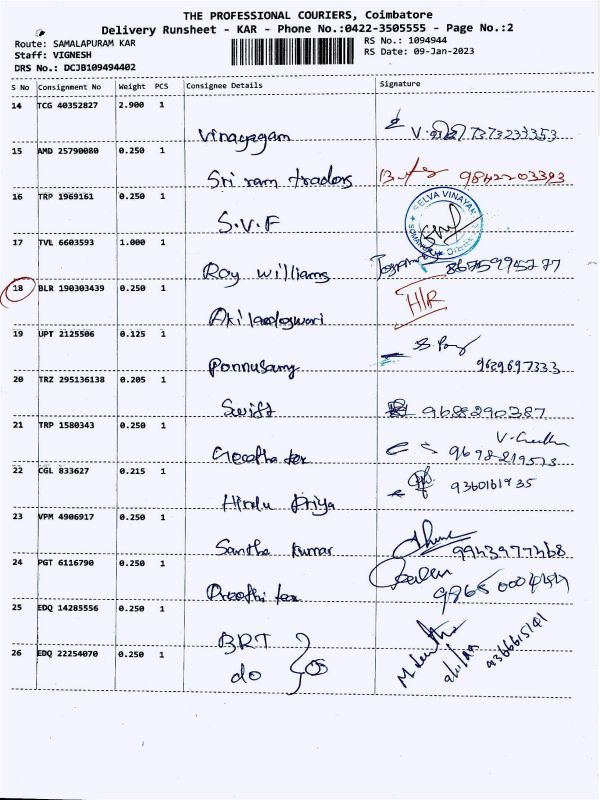 THE PROFESSIONAL COURIERS, Coimbatore
Delivery Runsheet - KAR - Phone No.:0422-3505555 - Page No.:2
Route: SAMALAPURAM KAR
Staff: VIGNESH
DRS No.: DCJB109494402
RS No.: 1094944
RS Date: 09-Jan-2023
S No Consignment No Weight PCS Consignee Details Signature
14 TCG 40352827 2.900 1
Vinayagam V. 7373233353
15 AMD 25790080 0.250 1
Sri ram traders 9842203393
16 TRP 1969161 0.250 1
S.V.F SELVA VINAYAK
17 TVL 6603593 1.000 1
Roy Williams
18 BLR 190303439 0.250 1
H/R
19 UPT 2125506 0.125 1
Ponnusamy 9629697333
20 TRZ 295136138 0.205 1
Swift 9688290387
21 TRP 1580343 0.250 1
Geetha tex
22 CGL 833627 0.215 1
Hindu Priya
23 VPM 4906917 0.250 1
Santha kumar
24 PGT 6116790 0.250 1
Preethi tex
25 EDQ 14285556 0.250 1
BRT
26 EDQ 22254070 0.250 1
do